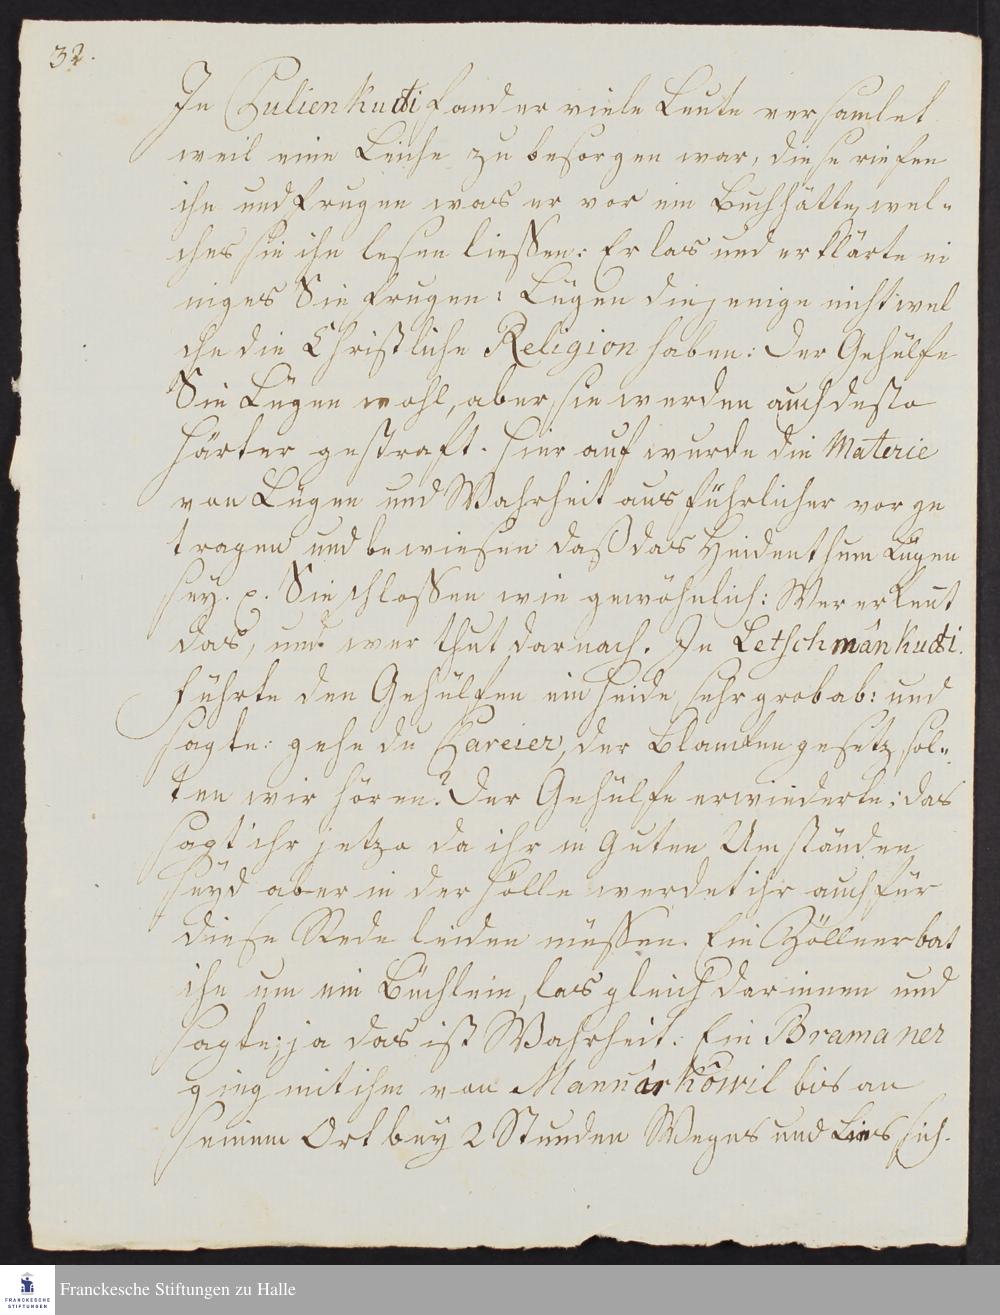 32.
In Culienkudi fand er viele Leute versamlet
weil eine Leiche zu besorgen war, diese riefen
ihn und frugen was er vor ein Buch hätte, wel=
ches sie ihn lesen liessen: Er las und erklärte ei
niges Sie frugen: Lügen diejenige nicht wel
che die Christliche Religion haben: Der Gehülfe
Sie Lügen wohl, aber sie werden auch desto
härter gestraft. Hier auf wurde die Materie
von Lügen und Wahrheit ausführlicher vorge
tragen und bewiesen daß das Heidenthum Lügen
sey. Sie schlossen wie gewöhnlich: Wer erkent
das, und wer thut darnach. In Letschmânkudi.
führte den Gehülfen ein Heide sehr grob ab: und
sagte: gehe du Careier, der Blancken gesetz sol=
ten wir hören? Der Gehülfe erwiederte: das
sagt ihr jetzo da ihr in Guten Umständen
seyd aber in der Hölle werdet ihr auch für
diese Rede leiden müssen. Ein Zöllner bat
ihn um ein Büchlein, las gleich darinnen und
sagte; ja das ist Wahrheit. Ein Bramaner
ging mit ihm von Mannârkôwil bis an
seinem Ort bey 2 Stunden Weges und Lies sich.
FRANCKESCHE
STIFTUNGEN
Franckesche Stiftungen zu Halle